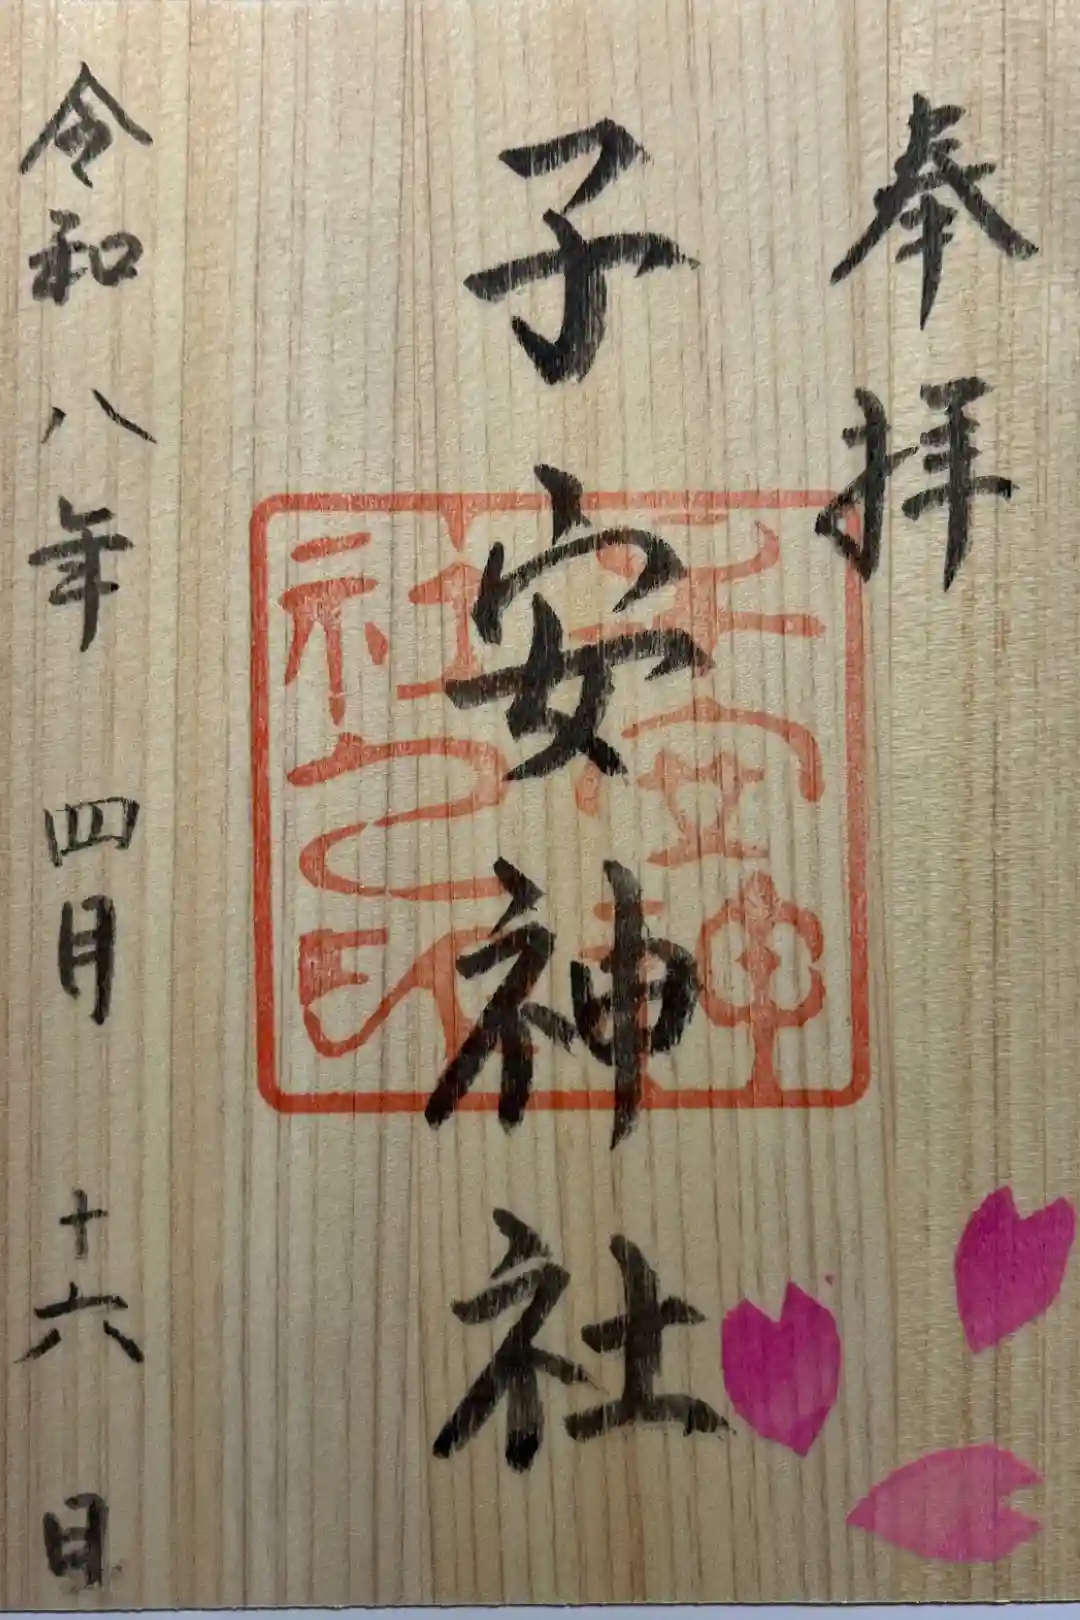 奉拝
子安神社
子安神社之印
令和八年四月十六日